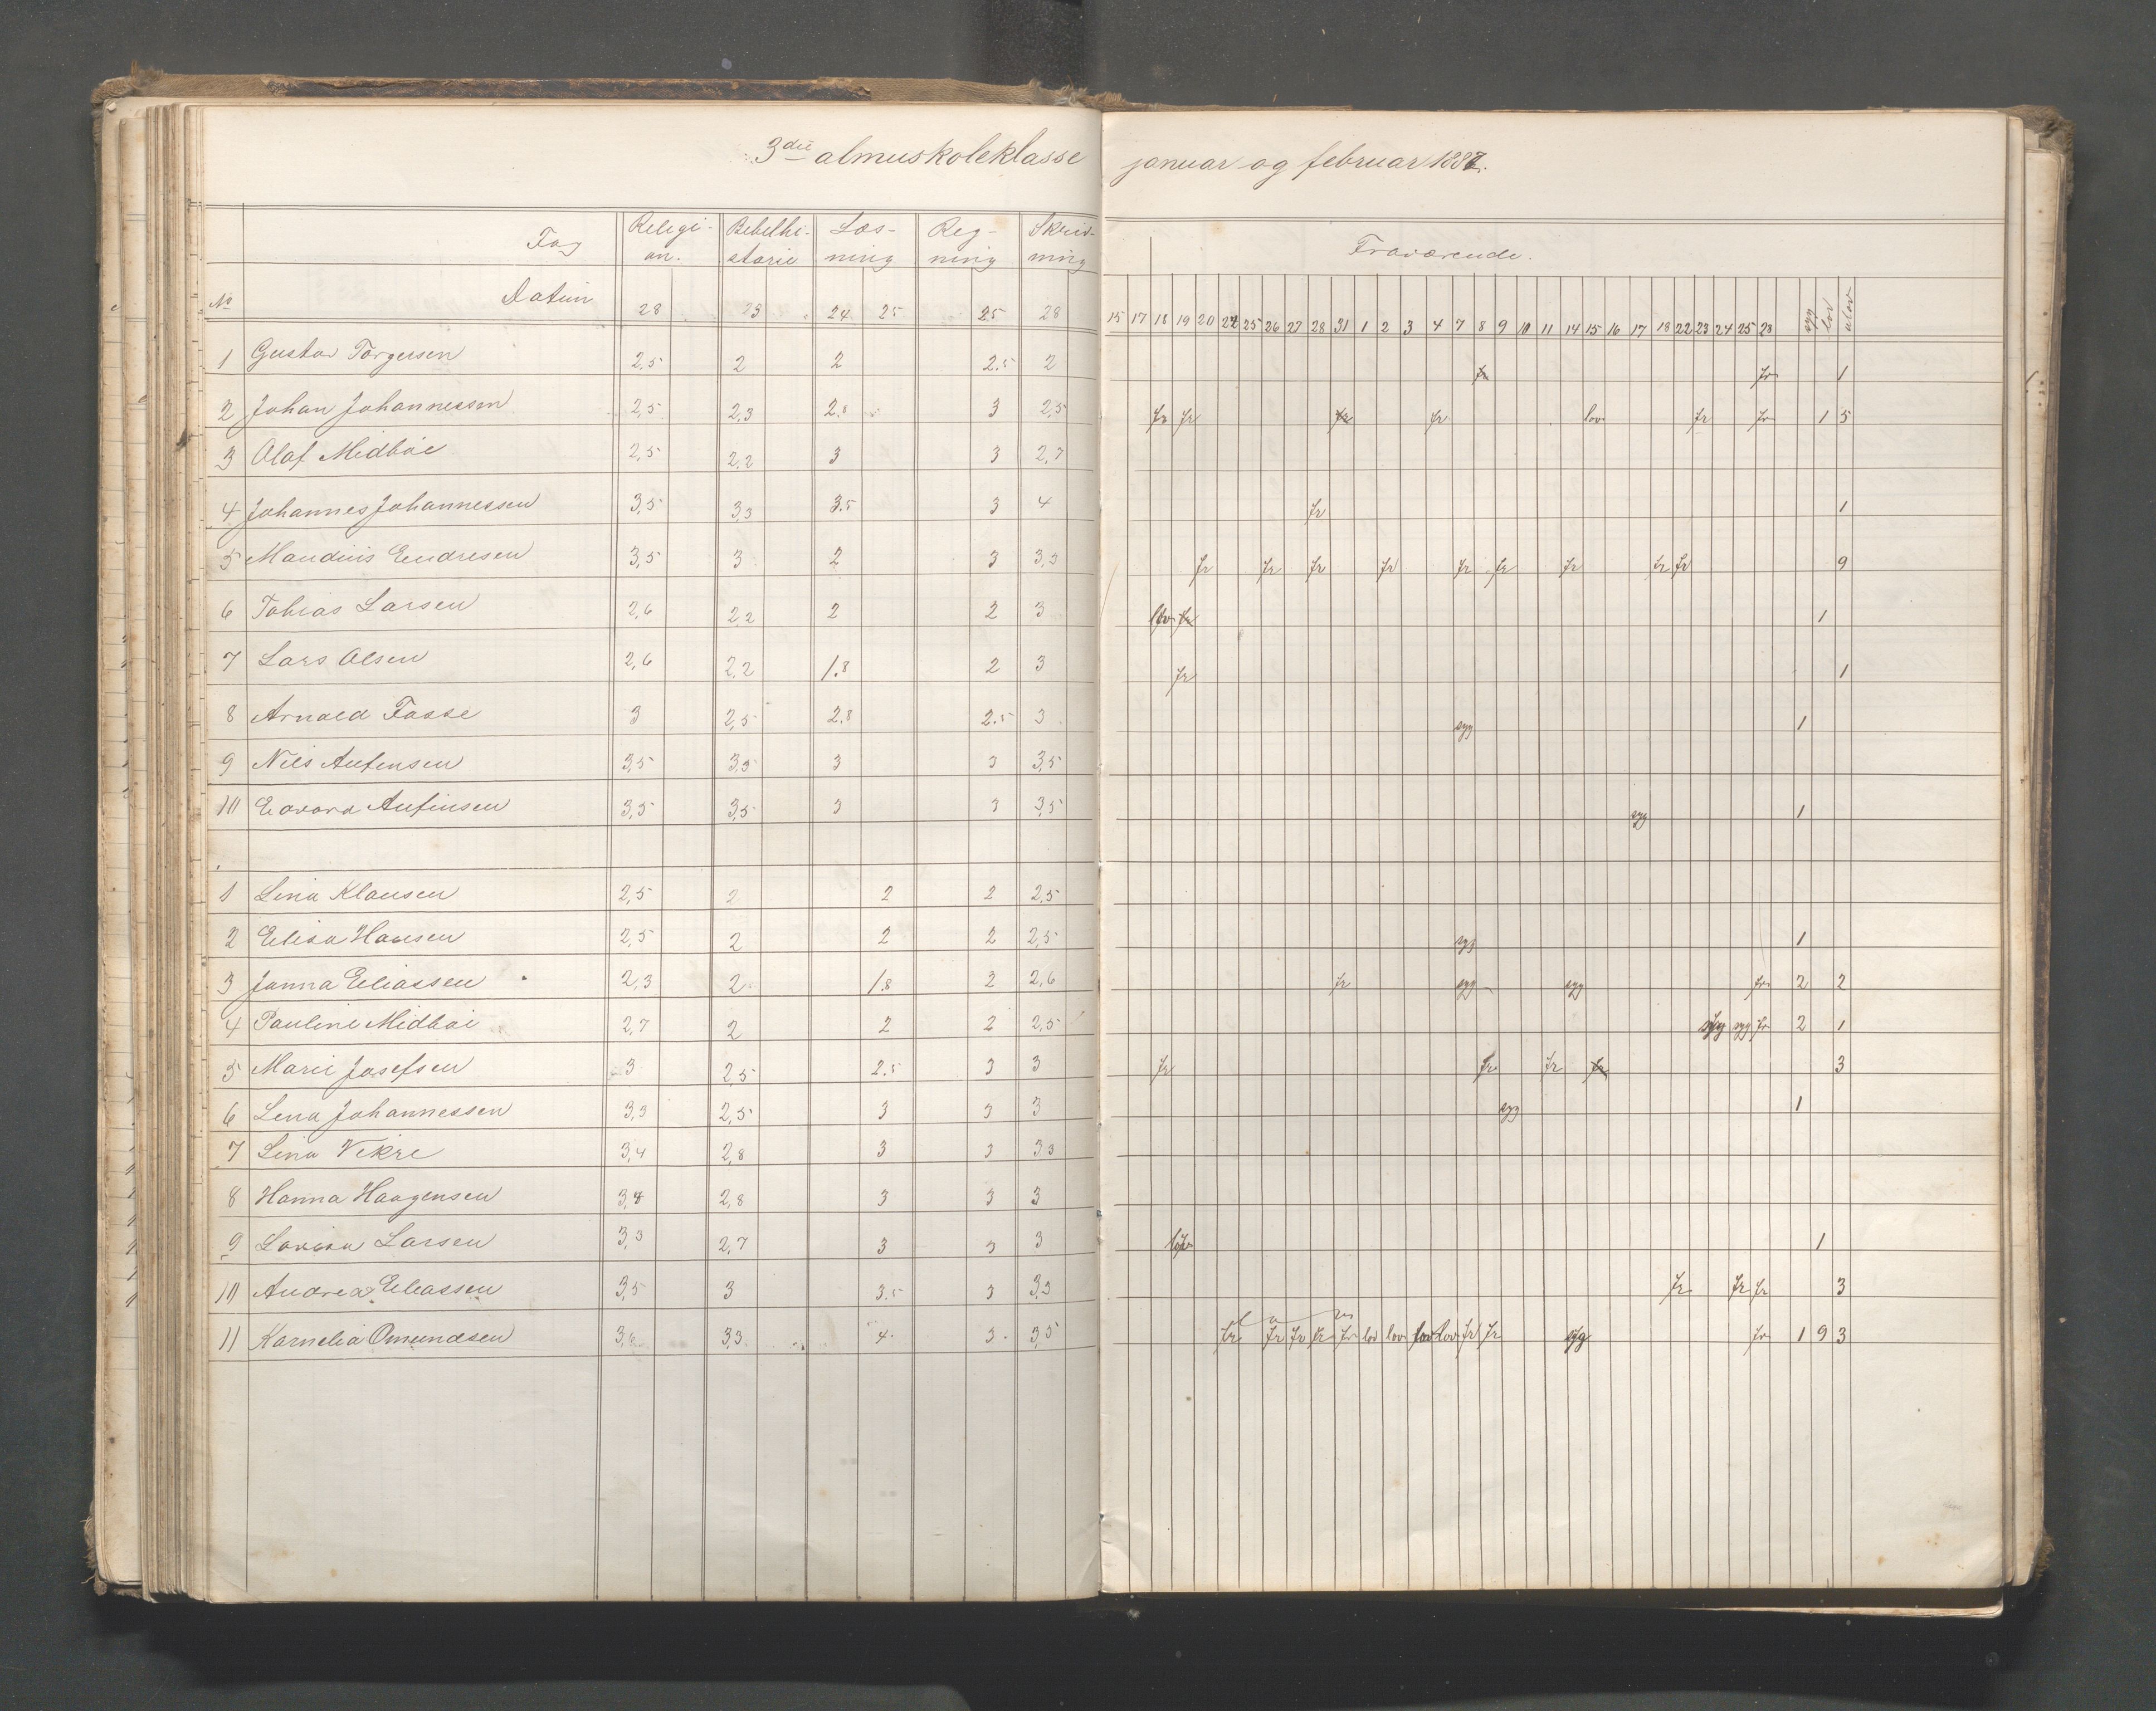 3die almuskoleklasse januar og februar 1887.
Fag Religi- Bibelhi- Læs- Reg- Skriv-
on. storie ning ning ning
Fraværende.
No Datum 28 23 24 25 25 28
15 17 18 19 20 24 25 26 27 28 31 1 2 3 4 7 8 9 10 11 14 15 16 17 18 22 23 24 25 28 syg lov ulov
1 Gustav Torgersen 2,5 2 2 2.5 2 fr fr 1
2 Johan Johannessen 2,5 2,3 2.8 3 2,5 fr fr fr fr lov fr fr 1 5
3 Olaf Midbøe 2,5 2,2 3 3 2,7
4 Johannes Johannessen 3,5 3,3 3.5 3 4 fr 1
5 Maudius Endresen 3,5 3 2 3 3,3 fr fr fr fr fr fr fr fr fr 9
6 Tobias Larsen 2,6 2,2 2 2 3 lov fr 1
7 Lars Olsen 2,6 2,2 1.8 2 3 fr 1
8 Arnold Fasse 3 2,5 2.8 2.5 3 syg 1
9 Nils Aufensen 3,5 3,5 3 3 3,5
10 Edvard Aufinsen 3,5 3,5 3 3 3,5 syg 1
1 Lina Klausen 2,5 2 2 2 2,5
2 Elisa Hansen 2,5 2 2 2 2,5 syg 1
3 Janna Eliassen 2,3 2 1.8 2 2,6 fr syg syg fr 2 2
4 Pauline Midbøe 2,7 2 2 2 2,5 syg syg fr 2 1
5 Marie Josefsen 3 2,5 2.5 3 3 fr fr fr fr 3
6 Lena Johannessen 3,3 2,5 3 3 3 syg 1
7 Lina Vikre 3,4 2,8 3 3 3,3
8 Hanna Haagensen 3,4 2,8 3 3 3
9 Lovisa Larsen 3,3 2,7 3 3 3 lov 1
10 Andrea Eliassen 3,5 3 3.5 3 3,3 fr fr fr 3
11 Karnelia Omundsen 3,6 3,3 4 3 3,5 fr fr fr fr fr lov lov lov lov fr fr syg fr 1 9 3